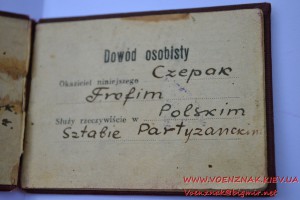 Dowód osobisty
Okaziciel niniejszego Czepak
Trofim
Służy rzeczywiście w Polskim
Sztabie Partyzanckim
WWW.VOENZNAK.KIEV.UA
Voenznak@bigmir.net